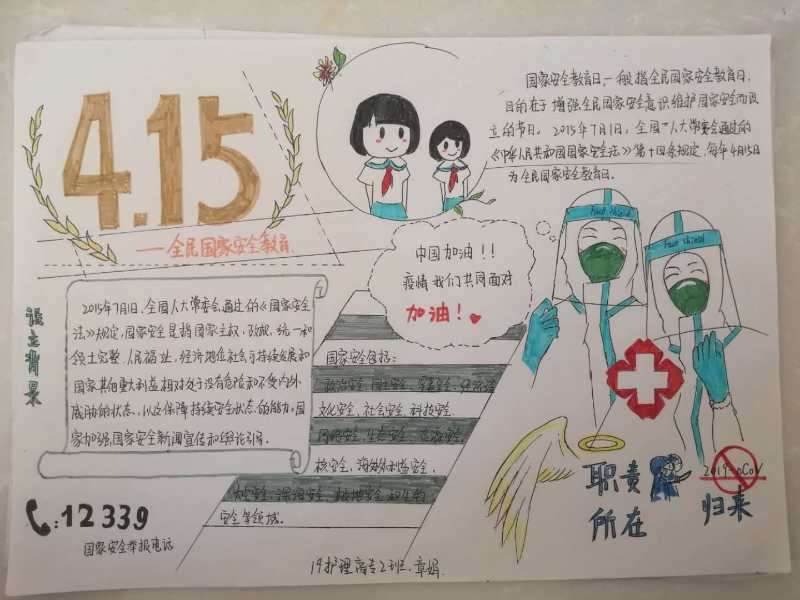 4.15
——全民国家安全教育.
国家安全教育日,一般指全民国家安全教育日,
目的在于增强全民国家安全意识维护国家安全而设
立的节日。2015年7月1日,全国人大常委会通过的
《中华人民共和国国家安全法》第十四条规定,每年4月15日
为全民国家安全教育日。
Face shield
Face shield
中国加油!!
疫情我们共同面对
加油!
设立背景
2015年7月1日,全国人大常委会通过的《国家安全
法》规定,国家安全是指国家主权、政权、统一和
领土完整、人民福祉、经济
社会可持续发展和
国家其他重大利益相对处于没有危险和不受内外
威胁的状态,以及保障持续安全状态的能力。国
家加强国家安全新闻宣传和舆论引导。
国家安全包括:
政治安全、国土安全、军事安全、经济安全
文化安全、社会安全、科技安全、
网络安全、生态安全、资源安全、
核安全、海外利益安全、
太空安全、深海安全、极地安全和生物
安全等领域。
:12339
国家安全举报电话
职责
所在
2019-nCoV
归来
19护理高专2班.章娟.